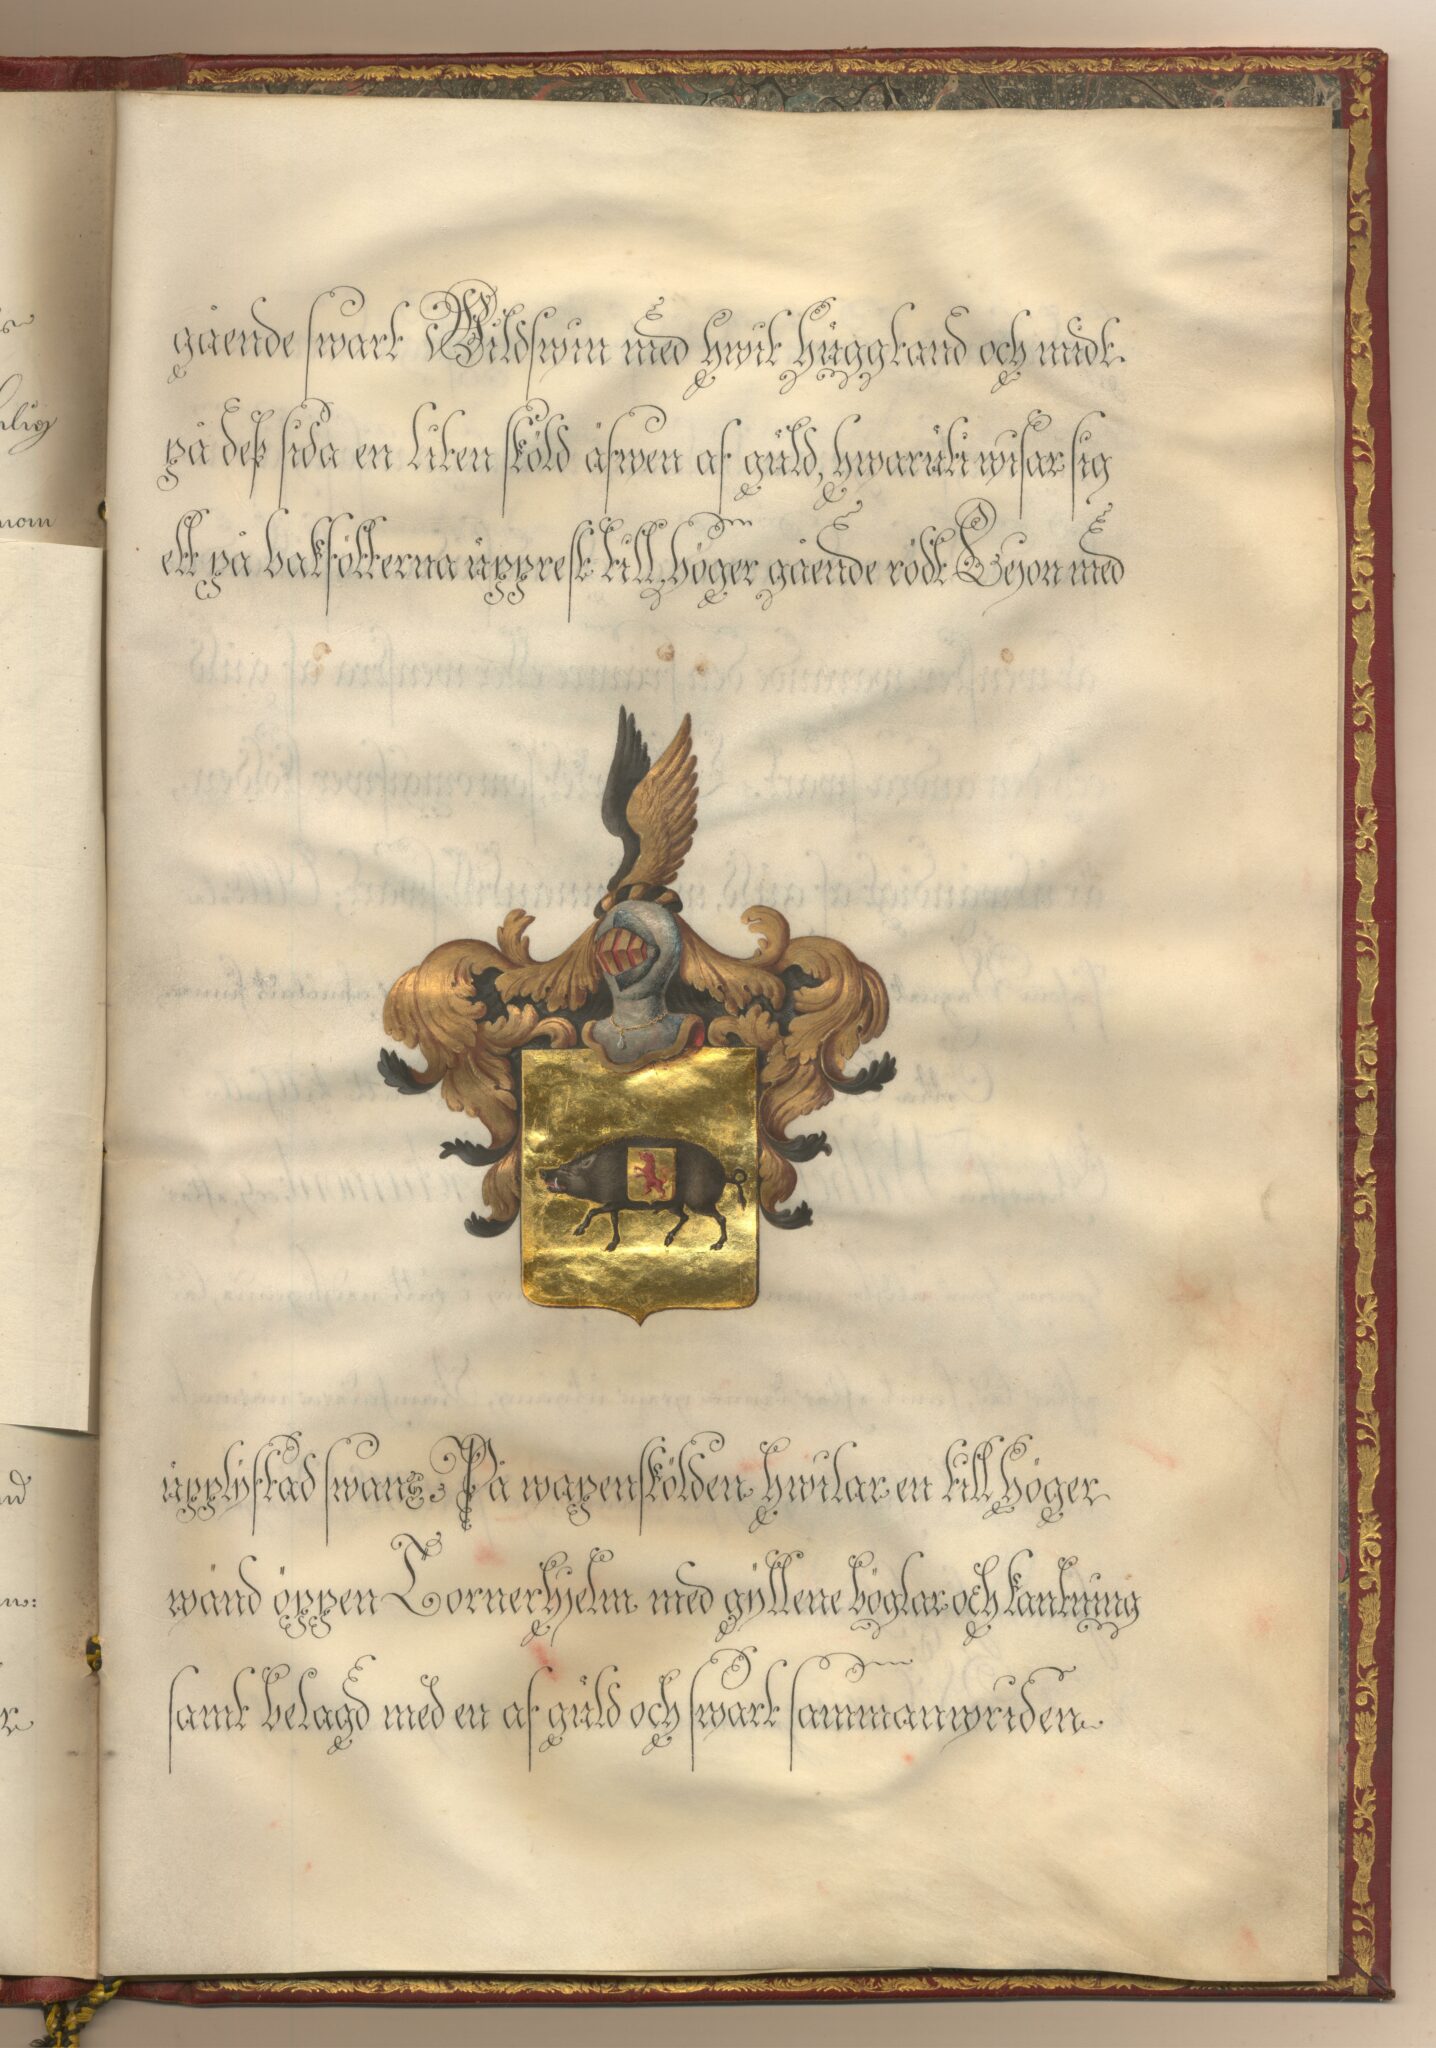 gående swart Wildswin med hwit huggtand och midt
på deß sida en liten sköld äfwen af guld, hwaruti wisar sig
ett på bakfötterna upprest till höger gående rödt Lejon med
upplyftad swans. På wapenskölden hwilar en till höger
wänd öppen Tornerhjelm med gyllene böglar och kantning
samt belagd med en af guld och swart sammanwriden